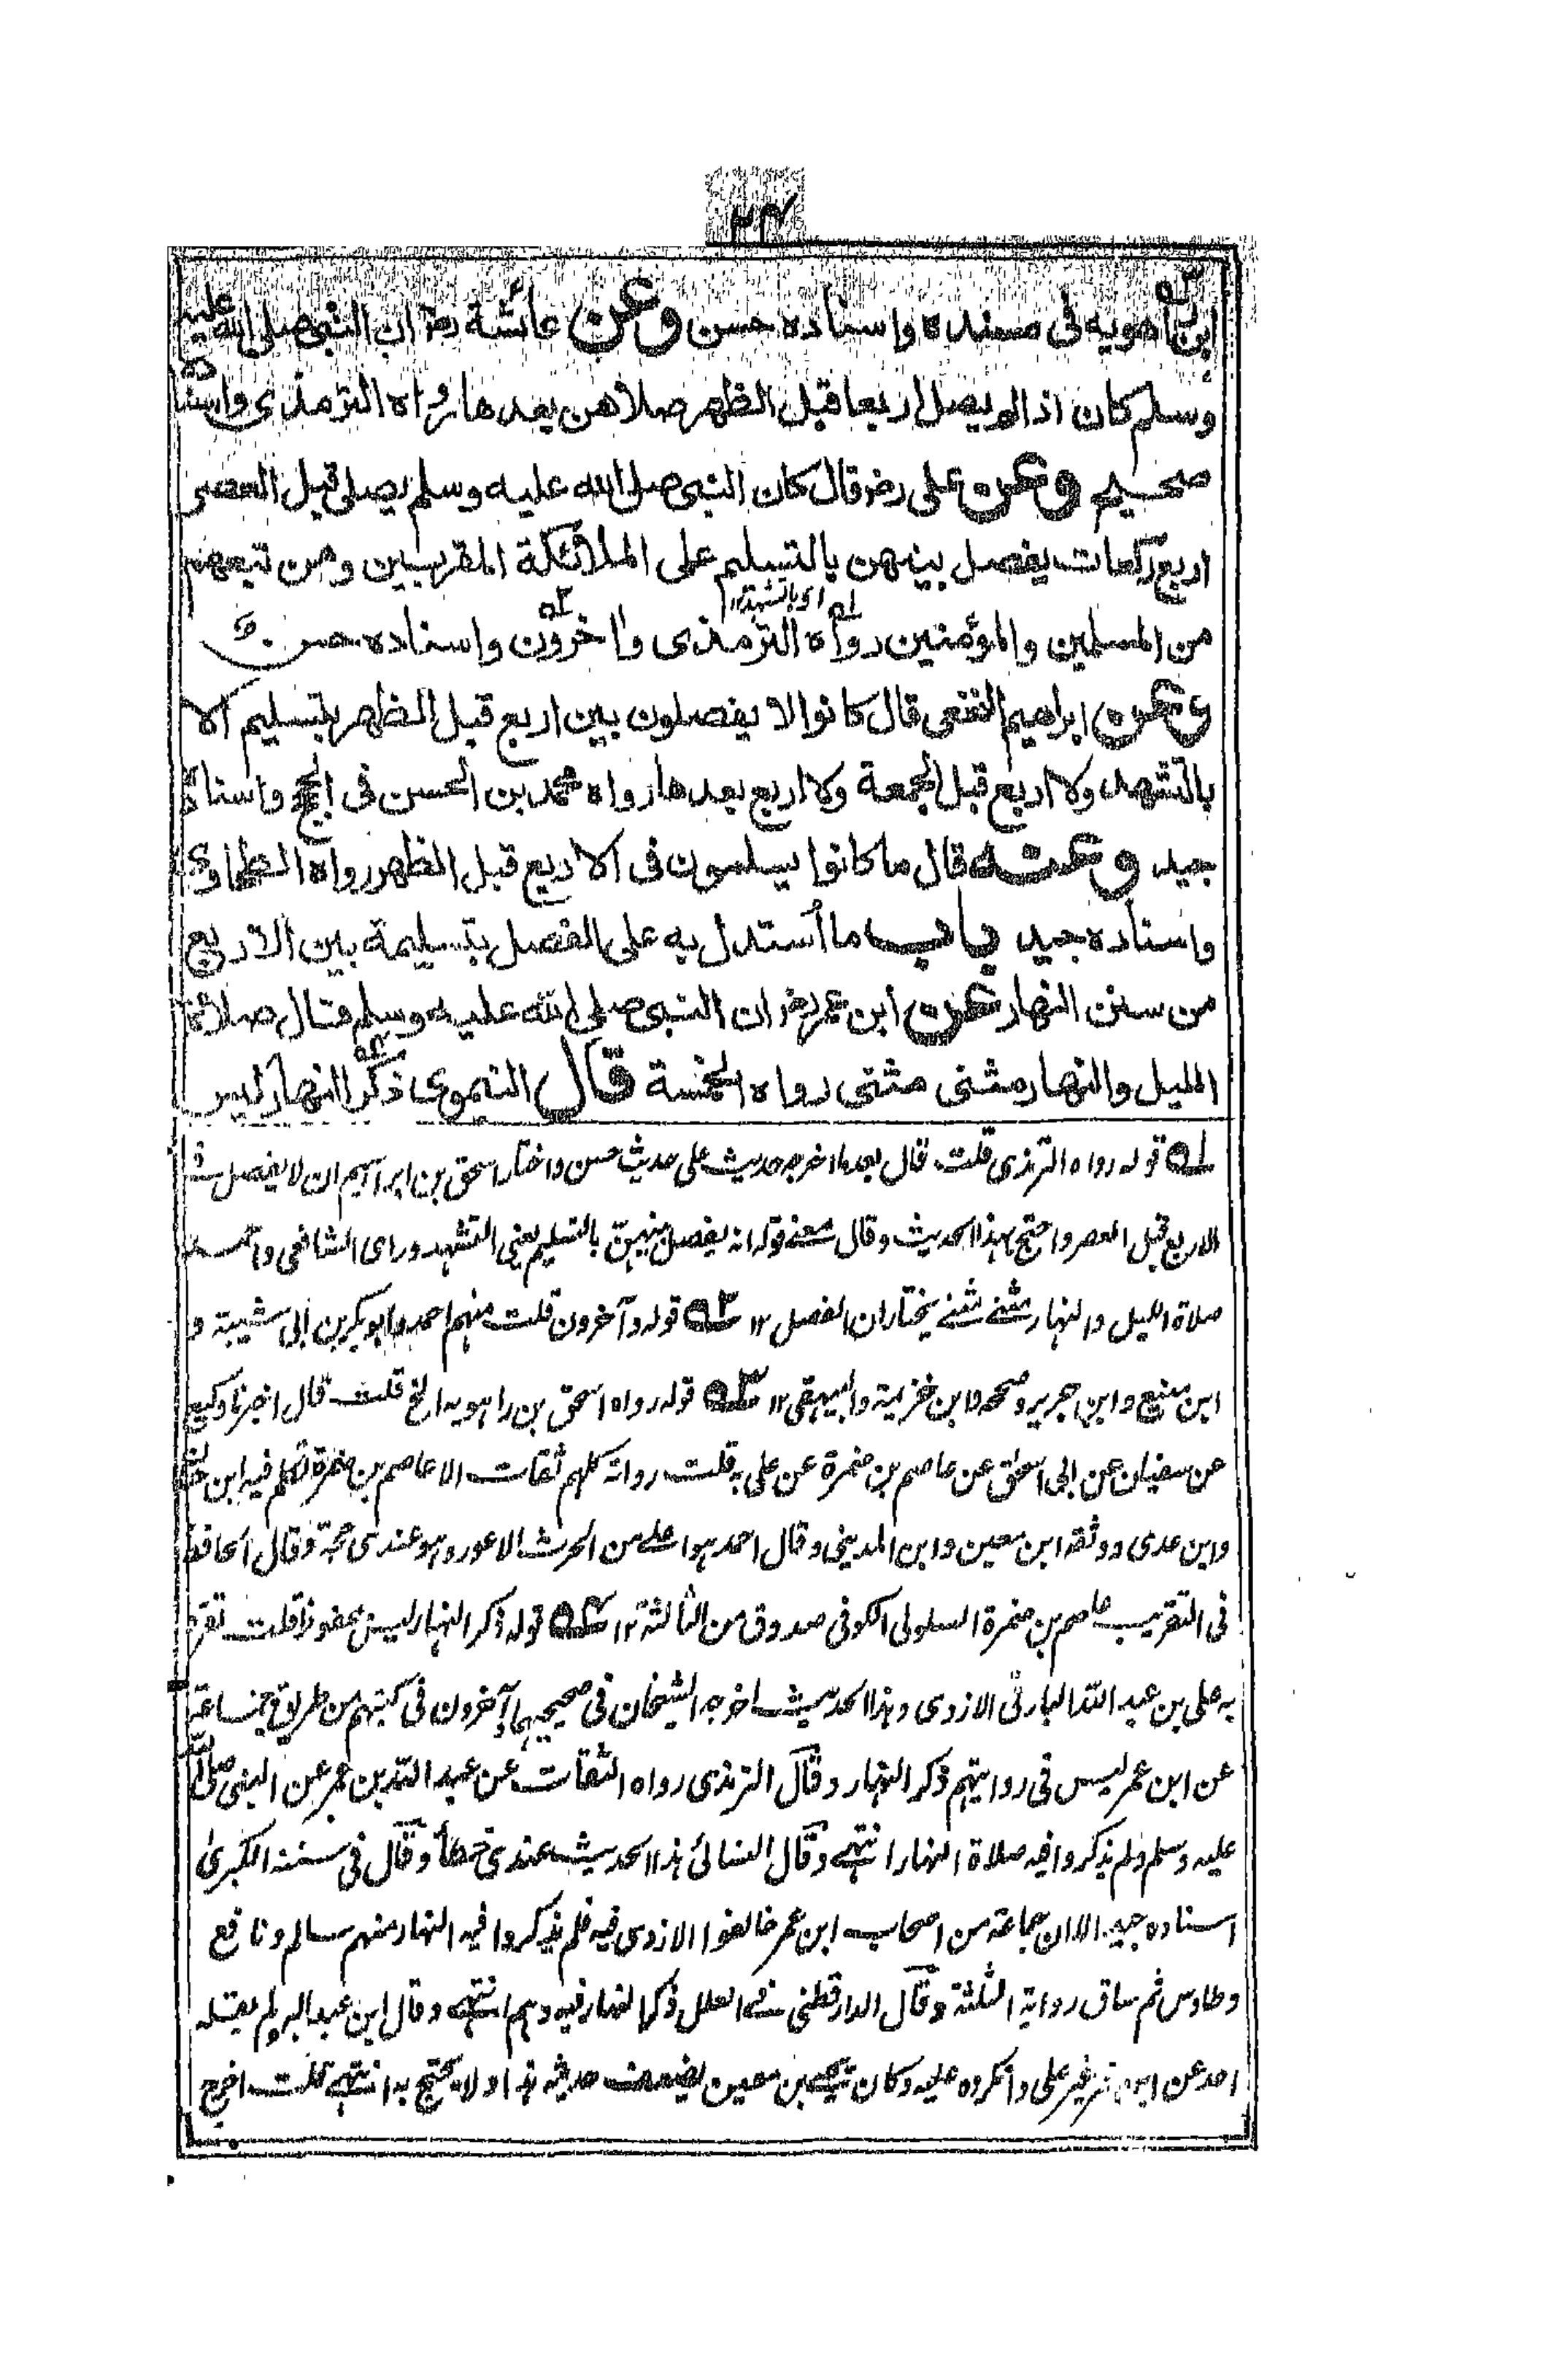 ٢٤
ابن راهويه فى مسنده واسناده حسن وعن عائشة رض ان النبى صلى الله عليه
وسلم كان اذا لم يصل اربعا قبل الظهر صلاهن بعدها رواه الترمذى واسناده
صحيح وعن على رض قال كان النبى صلى الله عليه وسلم يصلى قبل العصر
اربع ركعات يفصل بينهن بالتسليم على الملائكة المقربين ومن تبعهم
اى بالتشهد ١٢
من المسلمين والمؤمنين رواه الترمذى واخرون واسناده حسن
وعن ابراهيم النخعى قال كانوا لا يفصلون بين اربع قبل الظهر بتسليم الا
بالتشهد ولا اربع قبل الجمعة ولا اربع بعدها رواه محمد بن الحسن فى الحجج واسناده
جيد وعنه قال ما كانوا يسلمون فى الاربع قبل الظهر رواه الطحاوى
واسناده جيد باب ما أستدل به على الفصل بتسليمة بين الاربع
من سنن النهار عن ابن عمر رض ان النبى صلى الله عليه وسلم قال صلاة
الليل والنهار مثنى مثنى رواه الخمسة قال النيموى ذكر النهار ليس
١ قوله رواه الترمذى قلت قال بعد ما اخرجه حديث على حديث حسن واختار اسحق بن ابراهيم ان لا يفصل فى
الاربع قبل العصر واحتج بهذا الحديث وقال معنى قوله انه يفصل بينهن بالتسليم يعنى التشهد وراى الشافعى واحمد
صلاة الليل والنهار مثنى مثنى يختاران الفصل ١٢ ٢ قوله وآخرون قلت منهم احمد وابو بكر بن ابى شيبة و
ابن منيع وابن جرير وصححه وابن خزيمة والبيهقى ١٢ ٣ قوله رواه اسحق بن راهويه الخ قلت قال اخبرنا وكيع
عن سفيان عن ابى اسحاق عن عاصم بن ضمرة عن على به قلت رواته كلهم ثقات الا عاصم بن ضمرة تكلم فيه ابن حبان
وابن عدى ووثقه ابن معين وابن المدينى وقال احمد هو اعلى من الحرث الاعور وهو عندى حجة وقال الحافظ
فى التقريب عاصم بن ضمرة السلولى الكوفى صدوق من الثالثة ١٢ ٤ قوله ذكر النهار ليس بمحفوظ قلت تفرد
به على بن عبد الله البارقى الازدى وهذا الحديث اخرجه الشيخان فى صحيحيهما وآخرون فى كتبهم من طريق جماعة
عن ابن عمر ليس فى روايتهم ذكر النهار وقال الترمذى رواه الثقات عن عبد الله بن عمر عن النبى صلى الله
عليه وسلم ولم يذكروا فيه صلاة النهار انتهى وقال النسائى هذا الحديث عندى خطأ وقال فى سننه الكبرى
اسناده جيد الا ان جماعة من اصحاب ابن عمر خالفوا الازدى فيه فلم يذكروا فيه النهار منهم سالم ونافع
وطاوس ثم ساق رواية الثلثة وقال الدارقطنى فى العلل ذكر النهار فيه وهم انتهى وقال ابن عبد البر لم يقله
احد عن ابن عمر غير على وانكروه عليه وكان يحيى بن معين يضعف حديثه هذا ولا يحتج به انتهى قلت اخرج